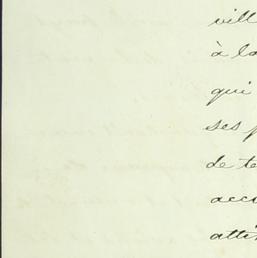 vill
à la
qui
ses p
de te
acc
atti